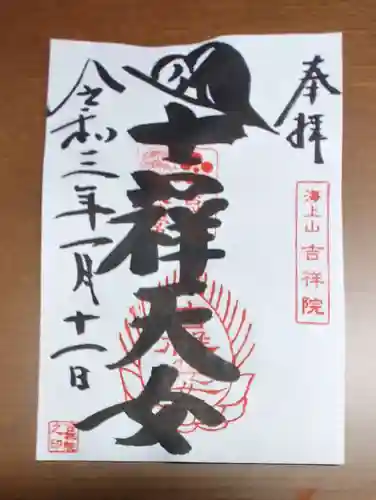 奉拝
海上山 吉祥院
吉祥天女
令和三年一月十一日